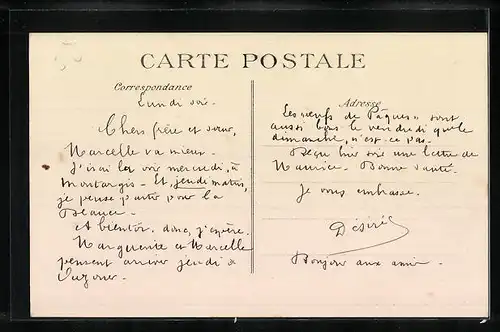 CARTE POSTALE
Correspondance
Lundi soir.
Chers frère et sœur,
Marcelle va mieux.
J'irai la voir mercredi, à
Montargis. Et, jeudi matin,
je pense partir pour la
Blance.
A bientôt, donc, j'espère.
Marguerite et Marcelle
pensent arriver jeudi à
Ouzouer.
Adresse
Les œufs de Pâques sont
aussi bons le vendredi que le
dimanche, n'est-ce pas.
Reçu hier soir une lettre de
Maurice. Bonne santé.
Je vous embrasse.
Désiré
Bonjour aux amis.